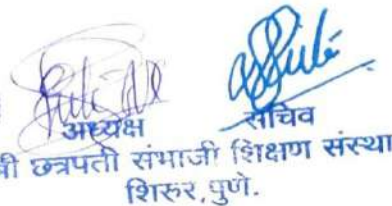 अध्यक्ष सचिव
श्री छत्रपती संभाजी शिक्षण संस्था
शिरुर,पुणे.